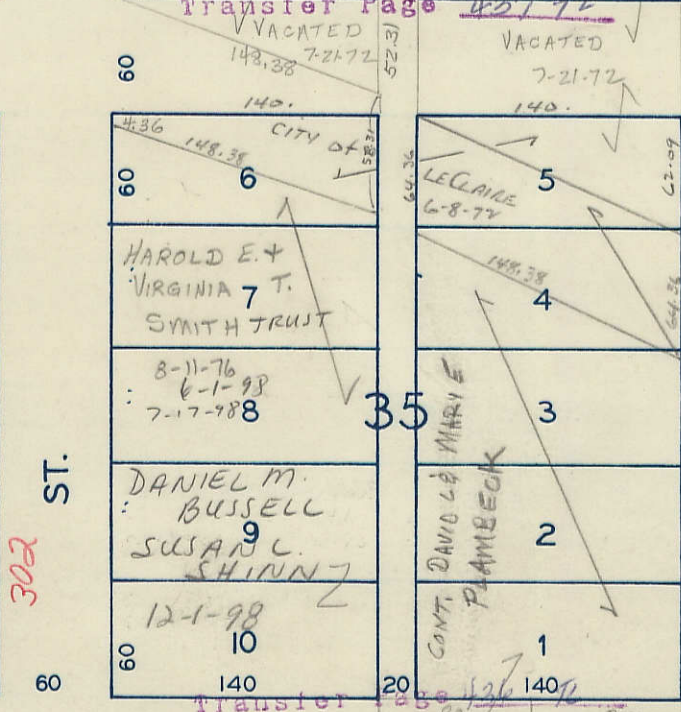 Transfer Page 457 72
VACATED
7-21-72
148.38
52.31
VACATED
7-21-72
60
140.
140.
4.36
148.38
CITY of
58.31
60
6
64.36
LECLAIRE
6-8-72
5
62.09
HAROLD E. +
VIRGINIA T.
7
SMITH TRUST
148.38
4
64.36
8-11-76
6-1-98
7-17-98
8
35
3
ST.
302
DANIEL M.
BUSSELL
9
SUSAN L.
SHINN
CONT. DAVID L & MARY E
PLAMBECK
2
12-1-98
10
1
60
60
140
20
140
Transfer Page 436 72